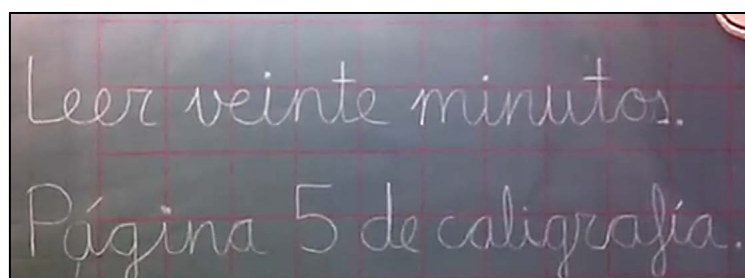 Leer veinte minutos.
Página 5 de caligrafía.